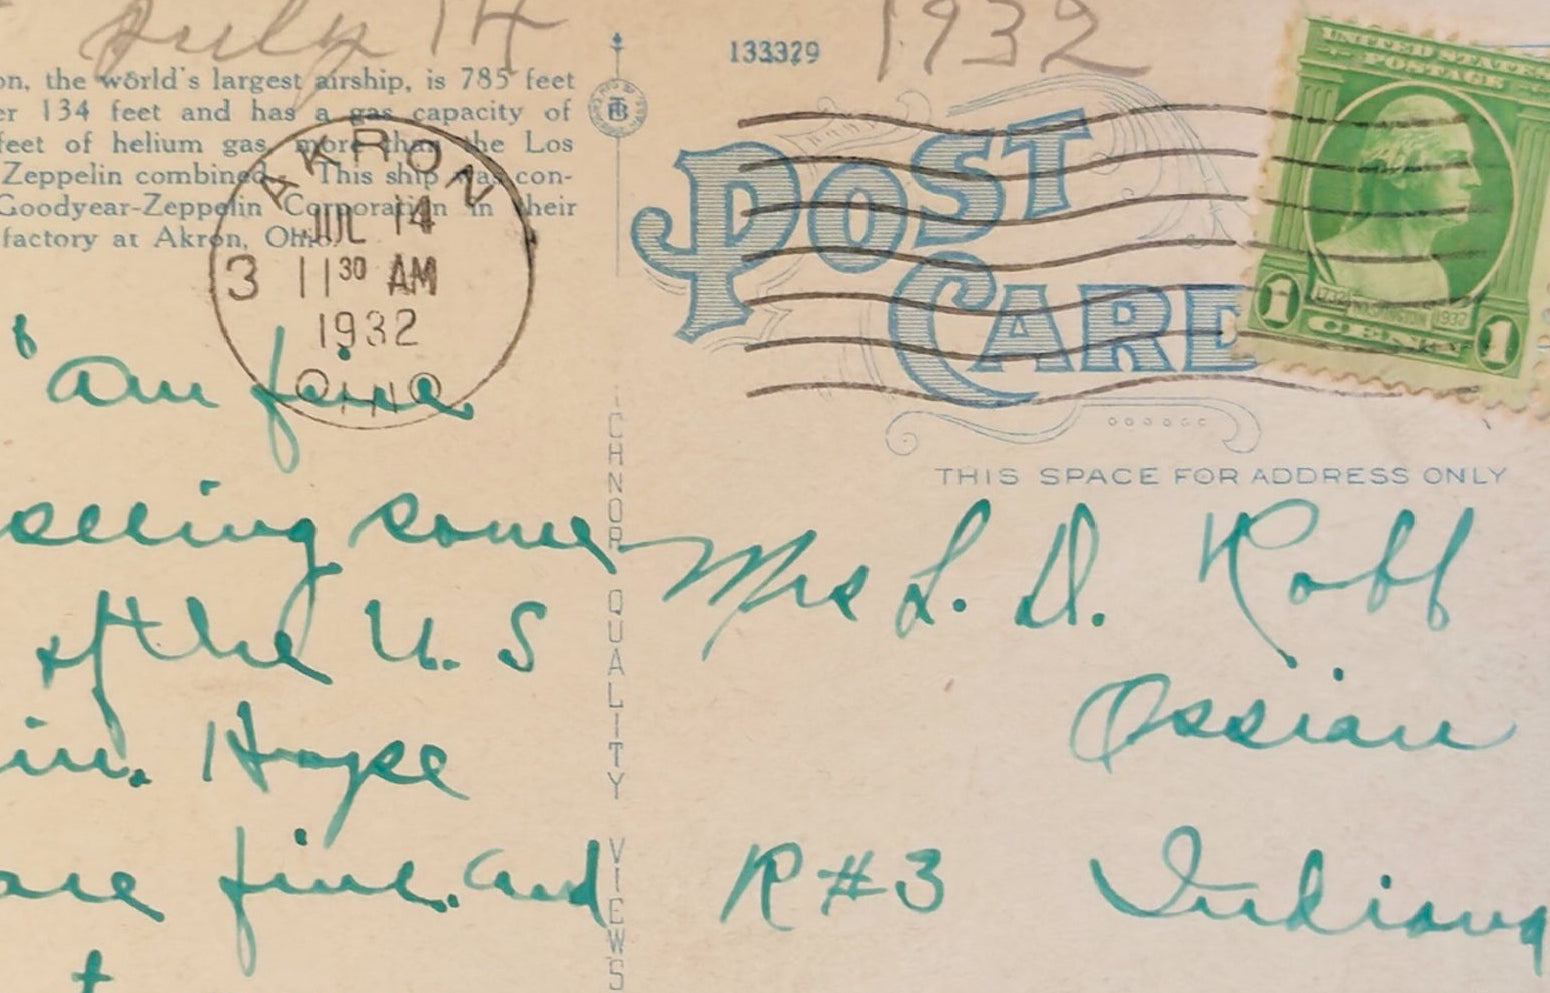 July 14 1932
on, the world's largest airship, is 785 feet
er 134 feet and has a gas capacity of
feet of helium gas, more than the Los
Zeppelin combined. This ship was con-
Goodyear-Zeppelin Corporation in their
factory at Akron, Ohio.
133329
AKRON
JUL 14
3 11 30 AM
1932
OHIO
POST
CARD
UNITED STATES
POSTAGE
1732 WASHINGTON 1932
1 CENT 1
THIS SPACE FOR ADDRESS ONLY
am fine
seeing some
of the U. S
in. Hope
are fine. and
ICHNOR QUALITY VIEWS
Mrs L. D. Robb
Ossian
R #3 Indiana